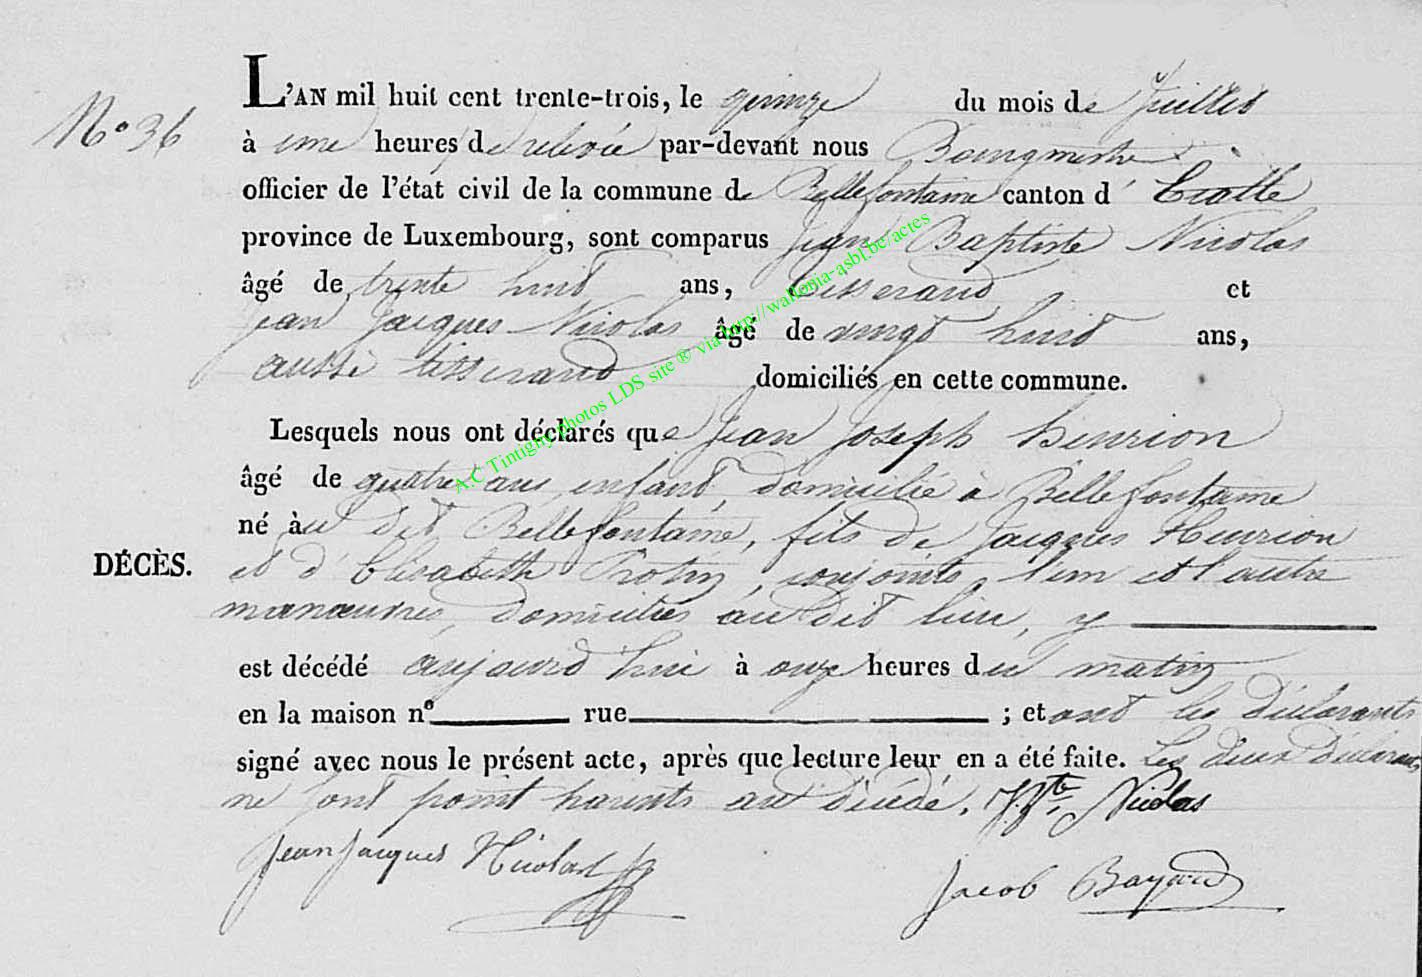 N° 36
L'AN mil huit cent trente-trois, le quinze du mois de Juillet
à une heures de relevée par-devant nous Bourgmestre
officier de l'état civil de la commune de Bellefontaine canton d' Etalle
province de Luxembourg, sont comparus Jean Baptiste Nicolas
âgé de trente huit ans, tisserand et
Jean Jacques Nicolas âgé de vingt huit ans,
aussi tisserand domiciliés en cette commune.
Lesquels nous ont déclarés que Jean Joseph henrion
âgé de quatre ans enfant, domicilié à Bellefontaine
né àu dit Bellefontaine, fils de Jacques Henrion
DÉCÈS.
et d'Elisabeth, conjoints, l'un et l'autre
manœuvres, domiciliés au dit lieu, y
est décédé aujourd'hui à onze heures du matin
en la maison n° rue ; et ont les déclarants
signé avec nous le présent acte, après que lecture leur en a été faite. Les deux Déclarants
ne sont point parents au décédé. J. Bte Nicolas
Jean Jacques Nicolas
Jacob Bayard
A.C Tintigny photos LDS site ® via http://wallonia-asbl.be/actes